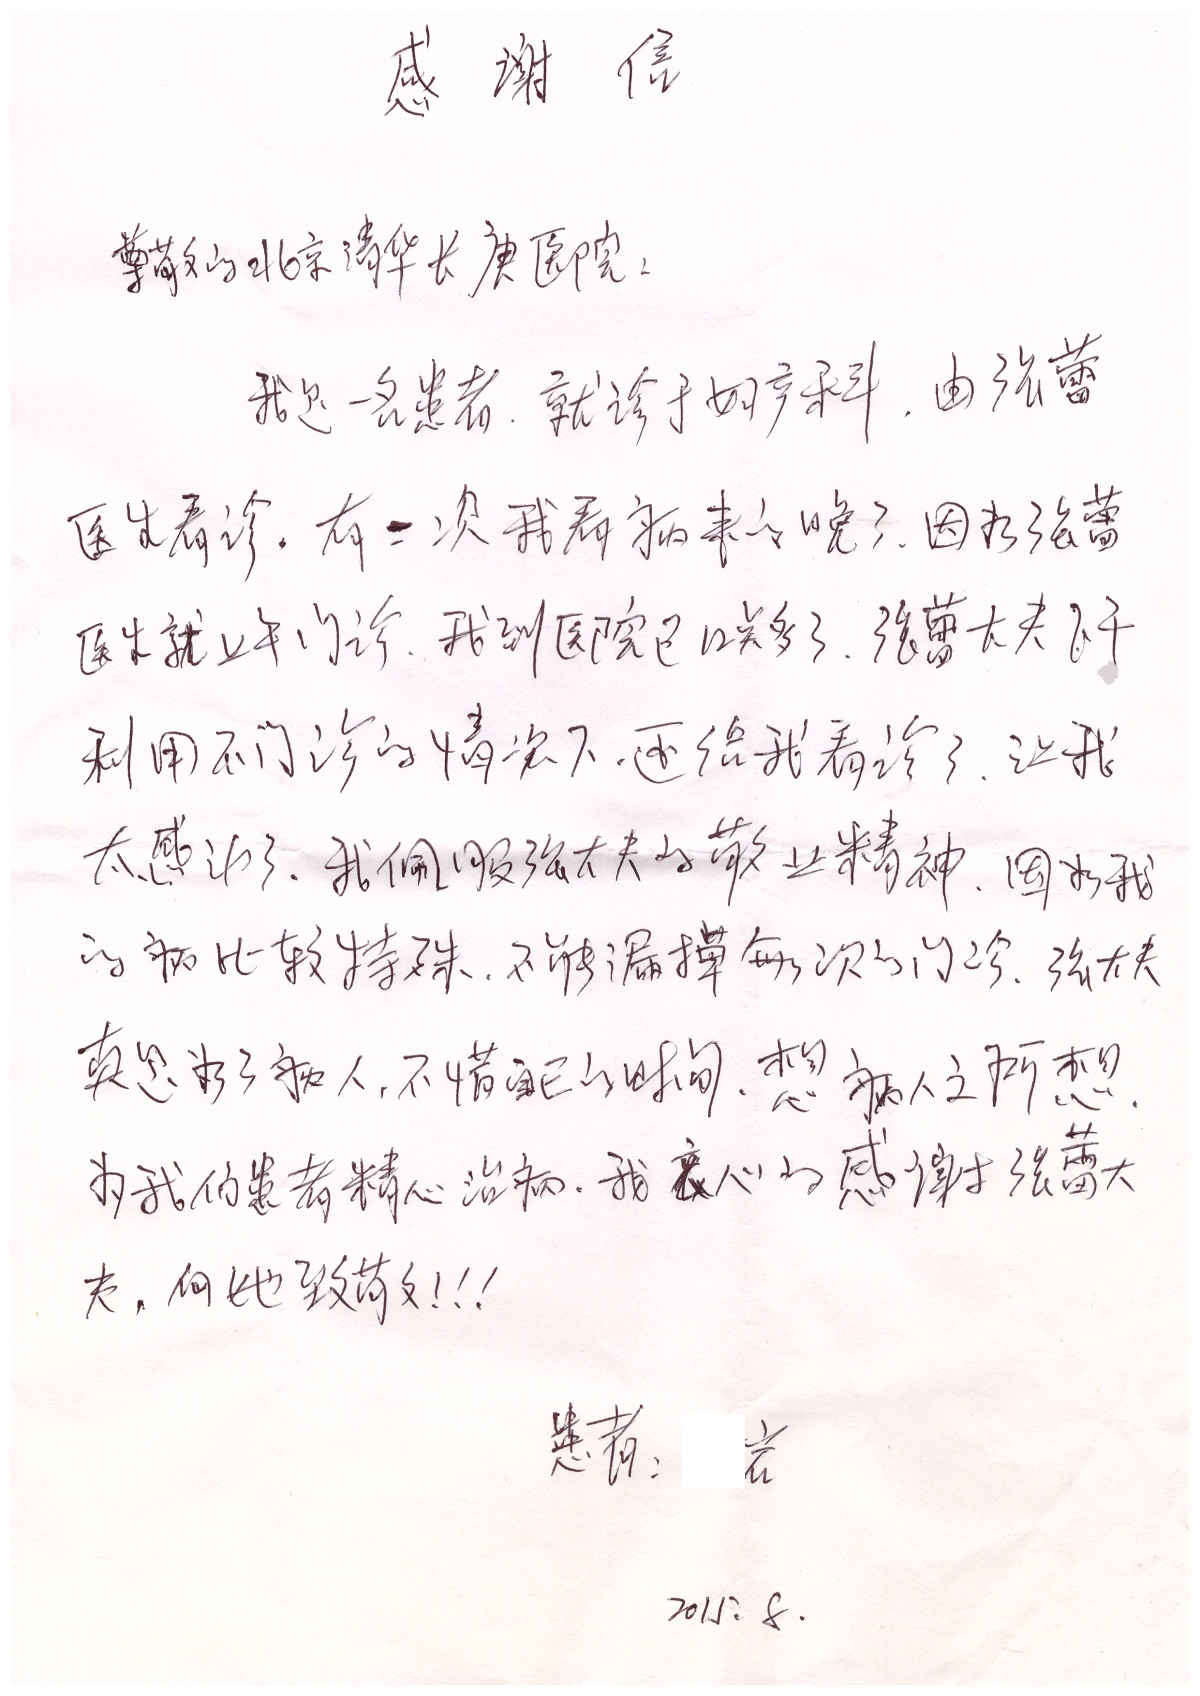 感谢信
尊敬的北京清华长庚医院：
我是一名患者.就诊于妇产科.由张蕾
医生看诊。有一次我看病来的晚了.因为张蕾
医生就上午门诊.我到医院已12点多了.张蕾大夫下午
利用不门诊的情况下.还给我看诊了.让我
太感动了.我佩服张大夫的敬业精神.因为我
的病比较特殊.不能漏掉每次的门诊.张大夫
真是为了病人,不惜自己的时间.想病人之所想.
为我们患者精心治病.我衷心的感谢张蕾大
夫,向她致敬!!!
患者：岩
2015.8.